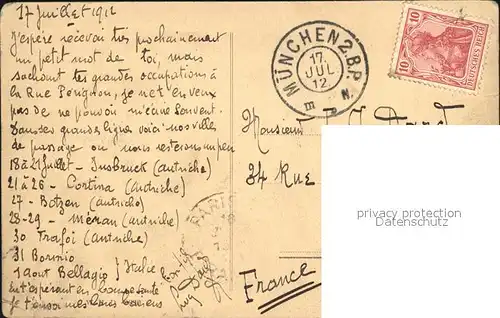 17 Juillet 1912
J'espère recevoir très prochainement
un petit mot de toi, mais
sachant tes grandes occupations à
la Rue Perignon, je ne t'en veux
pas de ne pouvoir m'écrire souvent.
Dans ses grandes lignes voici nos villes
de passage où nous resterons un peu
18 à 21 Juillet - Insbruck (autriche)
21 à 26 - Cortina (Autriche)
27 - Botzen (autriche)
28-29 - Méran (autriche)
30 Trafoï (autriche)
31 Bormio
1 aout Bellagio } Italie
En t'espérant en bonne santé
je t'envoi mes bons baisers
MÜNCHEN 2. B.P.
17.
JUL
12.
III N.
10 10
DEUTSCHES REICH
Monsieur
34 Rue
France
privacy protection
Datenschutz